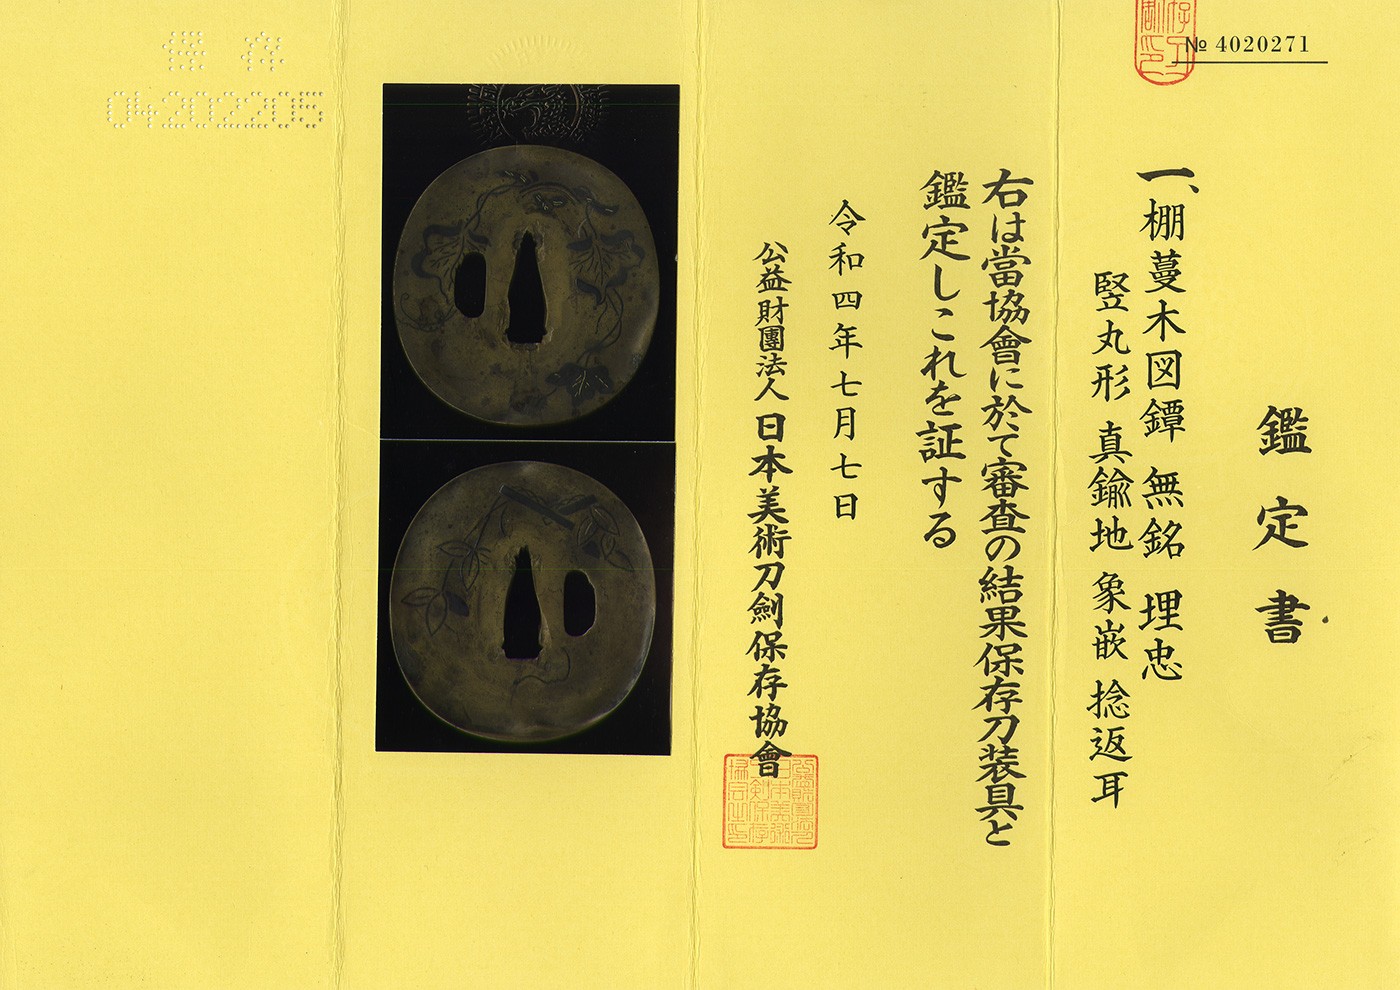 № 4020271
鑑定書
一、棚蔓木図鐔 無銘 埋忠
竪丸形 真鍮地 象嵌 捻返耳
右は當協會に於て審査の結果保存刀装具と
鑑定しこれを証する
令和四年七月七日
公益財團法人 日本美術刀劍保存協會
保存
04202205